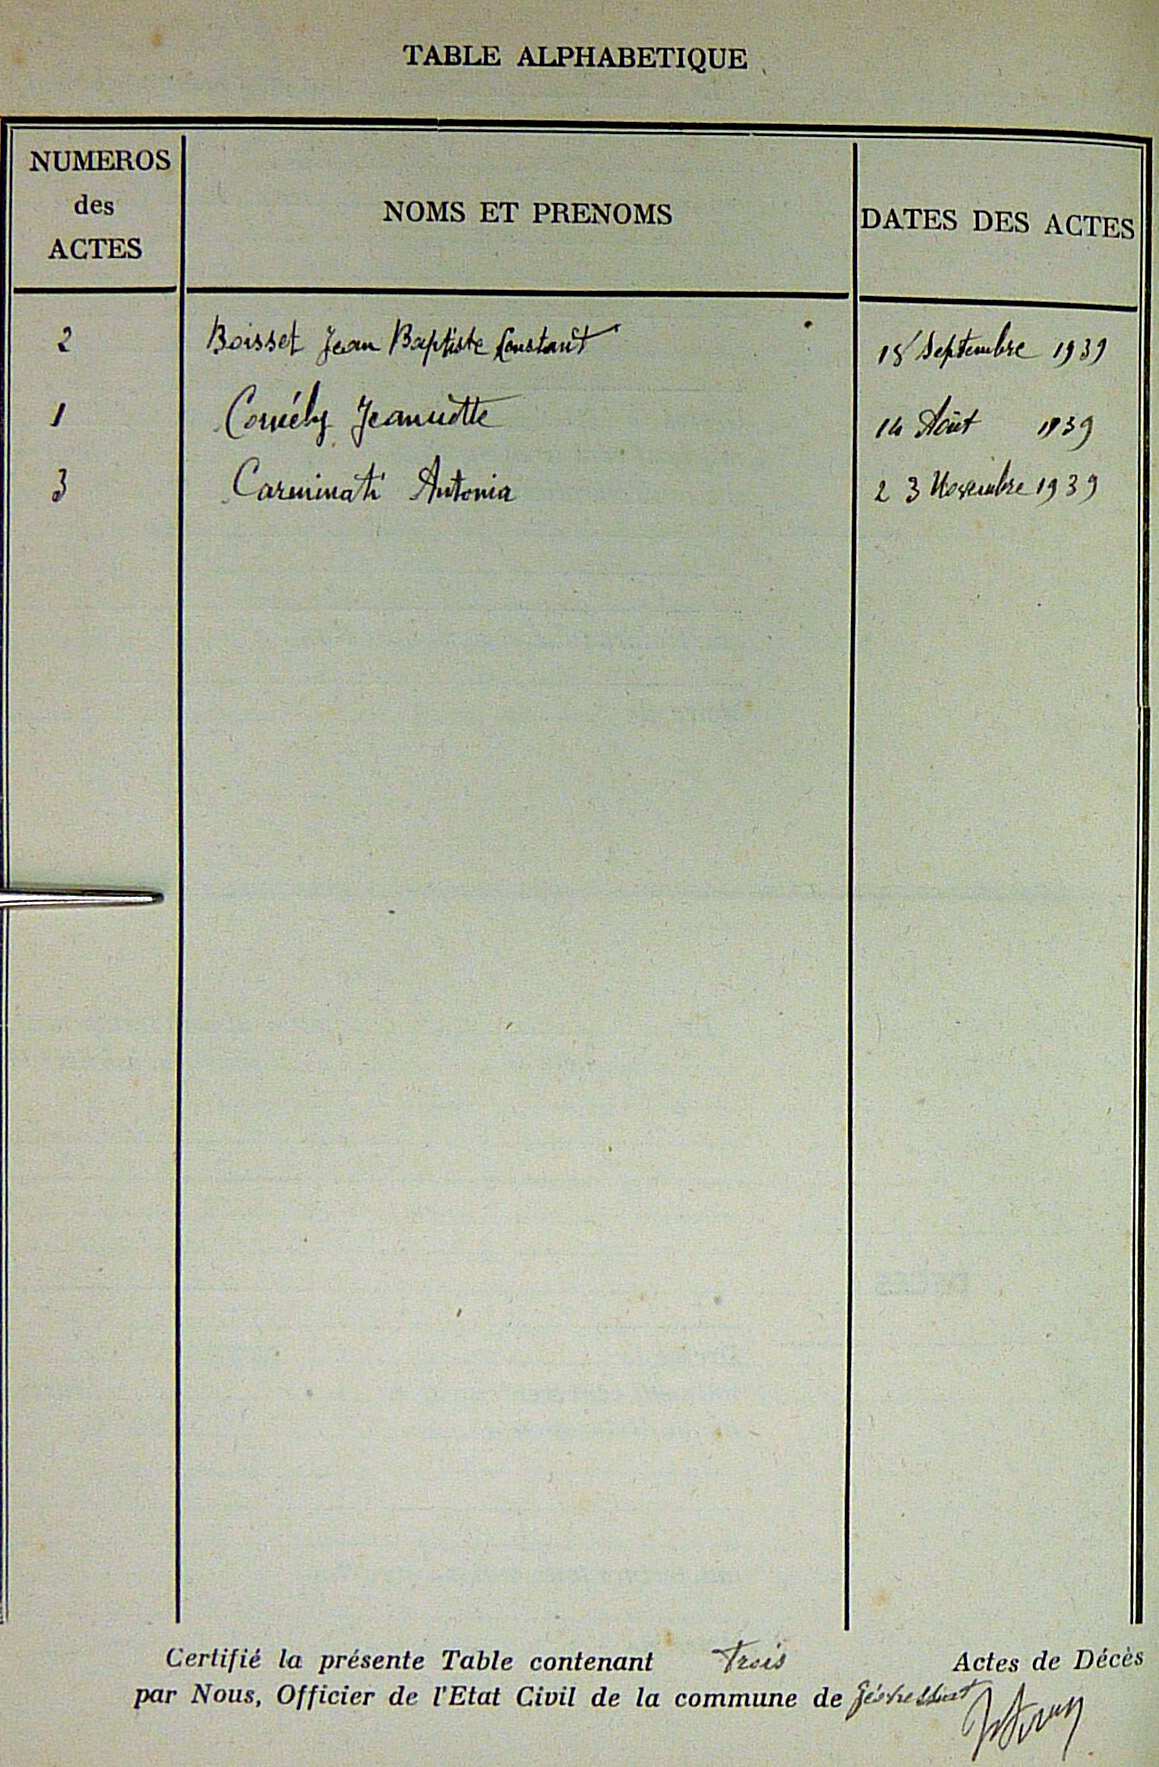 TABLE ALPHABETIQUE
NUMEROS
des
ACTES
NOMS ET PRENOMS
DATES DES ACTES
2 Boisset Jean Baptiste Constant 18 Septembre 1939
1 Cornély Jeannette 14 Août 1939
3 Carminati Antonia 23 Novembre 1939
Certifié la présente Table contenant Trois Actes de Décès
par Nous, Officier de l'Etat Civil de la commune de